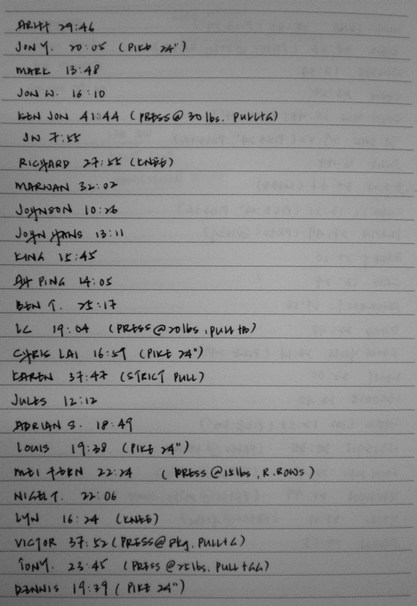 ARIFF 29:46
JON Y. 20:05 (PIKE 24")
MARK 13:48
JON W. 16:10
KEN JON 41:44 (PRESS@30lbs. PULL+G)
JN 7:55
RICHARD 27:55 (KNEE)
MARWAN 32:02
JOHNSON 10:26
JOHN HANS 13:11
KING 15:45
AH PING 14:05
BEN T. 25:17
LC 19:04 (PRESS@20lbs, PULL+B)
CHRIS LAI 16:59 (PIKE 24")
KAREN 37:47 (STRICT PULL)
JULES 12:12
ADRIAN S. 18:49
LOUIS 19:38 (PIKE 24")
MEI FERN 22:24 (PRESS@15lbs, R.ROWS)
NIGEL T. 22:06
LYN 16:24 (KNEE)
VICTOR 37:52 (PRESS@8kg, PULL+G)
TONY. 23:45 (PRESS@25lbs, PULL+GG)
DENNIS 19:39 (PIKE 24")